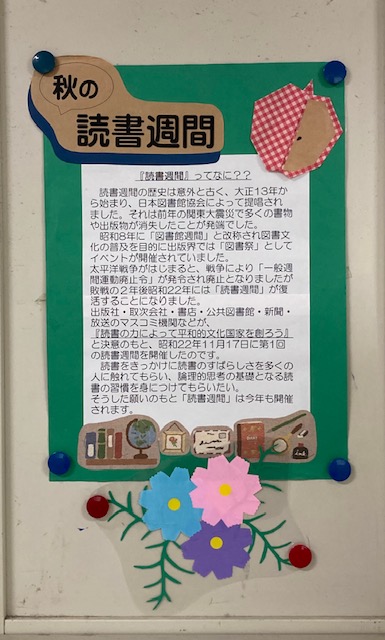 秋の
読書週間
『読書週間』ってなに??
読書週間の歴史は意外と古く、大正13年か
ら始まり、日本図書館協会によって提唱され
ました。それは前年の関東大震災で多くの書物
や出版物が消失したことが発端でした。
昭和8年に「図書館週間」と改称され図書文
化の普及を目的に出版界では「図書祭」として
イベントが開催されていました。
太平洋戦争がはじまると、戦争により「一般週
間運動廃止令」が発令され廃止となりましたが
敗戦の2年後昭和22年には「読書週間」が復
活することになりました。
出版社・取次会社・書店・公共図書館・新聞・
放送のマスコミ機関などが、
『読書の力によって平和的文化国家を創ろう』
と決意のもと、昭和22年11月17日に第1回
の読書週間を開催したのです。
読書をきっかけに読書のすばらしさを多くの
人に触れてもらい、論理的思考の基礎となる読
書の習慣を身につけてもらいたい。
そうした願いのもと「読書週間」は今年も開催
されます。